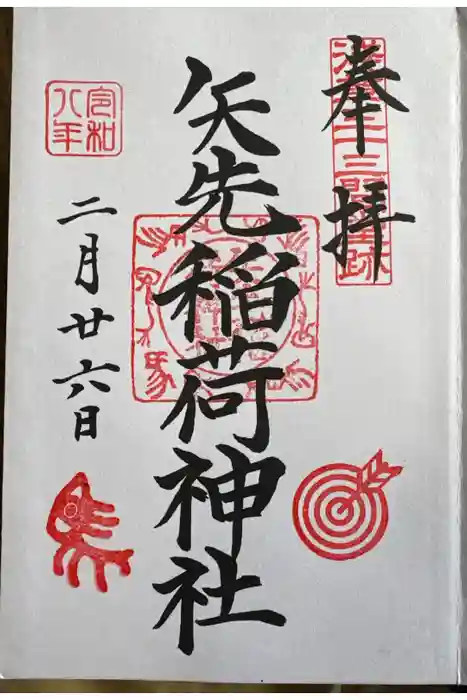 奉拝
浅草三十三間堂跡
矢先稲荷神社
令和
八年
二月廿六日